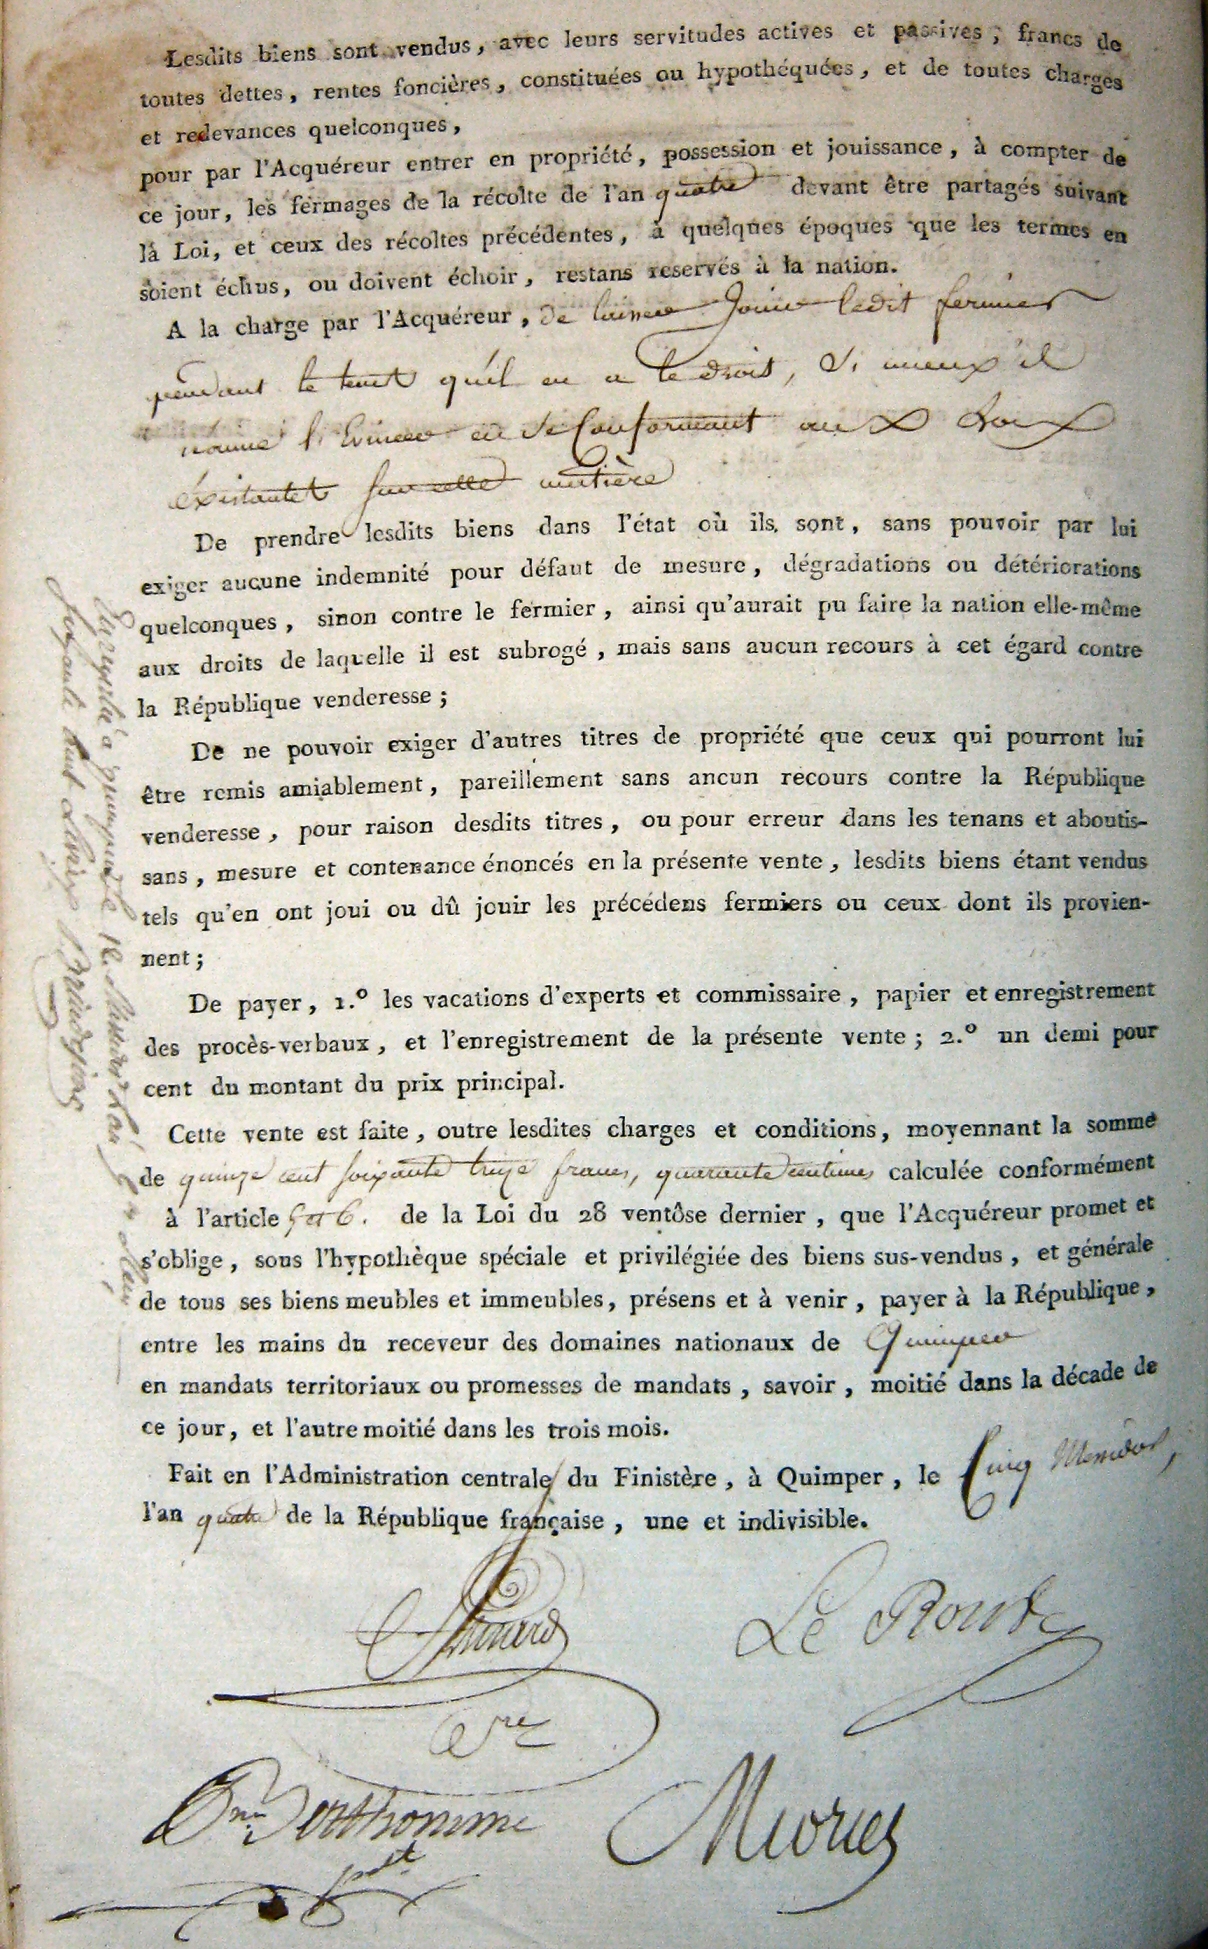 Lesdits biens sont vendus, avec leurs servitudes actives et passives ; francs de
toutes dettes, rentes foncières, constituées ou hypothéquées, et de toutes charges
et redevances quelconques,
pour par l'Acquéreur entrer en propriété, possession et jouissance, à compter de
ce jour, les fermages de la récolte de l'an quatre devant être partagés suivant
la Loi, et ceux des récoltes précédentes, à quelques époques que les termes en
soient échus, ou doivent échoir, restans reservés à la nation.
A la charge par l'Acquéreur, de laisser Jouir ledit fermier
pendant le temt qu'il en a le droit, Si mieux il
n'aime l'Evincer en se Conformant aux Loix
éxistantet sur cette matière
De prendre lesdits biens dans l'état où ils sont, sans pouvoir par lui
exiger aucune indemnité pour défaut de mesure, dégradations ou détériorations
quelconques, sinon contre le fermier, ainsi qu'aurait pu faire la nation elle-même
aux droits de laquelle il est subrogé, mais sans aucun recours à cet égard contre
la République venderesse ;
De ne pouvoir exiger d'autres titres de propriété que ceux qui pourront lui
être remis amiablement, pareillement sans ancun recours contre la République
venderesse, pour raison desdits titres, ou pour erreur dans les tenans et aboutis-
sans, mesure et contenance énoncés en la présente vente, lesdits biens étant vendus
tels qu'en ont joui ou dû jouir les précédens fermiers ou ceux dont ils provien-
nent ;
De payer, 1.º les vacations d'experts et commissaire, papier et enregistrement
des procès-verbaux, et l'enregistrement de la présente vente ; 2.º un demi pour
cent du montant du prix principal.
Cette vente est faite, outre lesdites charges et conditions, moyennant la somme
de quinze cent soixante treize francs, quarante centimes calculée conformément
à l'article 5 et 6. de la Loi du 28 ventôse dernier, que l'Acquéreur promet et
s'oblige, sous l'hypothèque spéciale et privilégiée des biens sus-vendus, et générale
de tous ses biens meubles et immeubles, présens et à venir, payer à la République,
entre les mains du receveur des domaines nationaux de Quimper
en mandats territoriaux ou promesses de mandats, savoir, moitié dans la décade de
ce jour, et l'autre moitié dans les trois mois.
Fait en l'Administration centrale du Finistère, à Quimper, le Cinq Messidor,
l'an quatre de la République française, une et indivisible.
Le Roux
Berthomme
Enregistré à quimper le 12. Messidor L'an